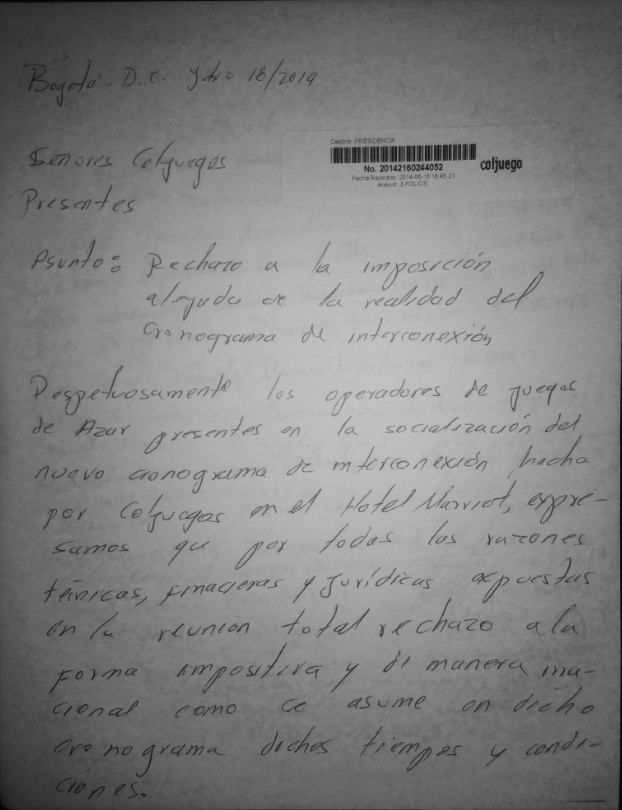 Bogotá - D.C. Julio 18/2014
Destino: PRESIDENCIA
No. 20142160244052
coljuego
Anexos: 3 FOLIOS
Señores Coljuegos
Presentes
Asunto: Rechazo a la imposición
alejada de la realidad del
cronograma de interconexión
Respetuosamente los operadores de juegos
de Azar presentes en la socialización del
nuevo cronograma de interconexión hecha
por Coljuegos en el Hotel Marriot, expre-
samos que por todas las razones
técnicas, finacieras y jurídicas expuestas
en la reunion total rechazo a la
forma impositiva y de manera irra-
cional como se asume en dicho
cronograma dichos tiempos y condi-
ciones.